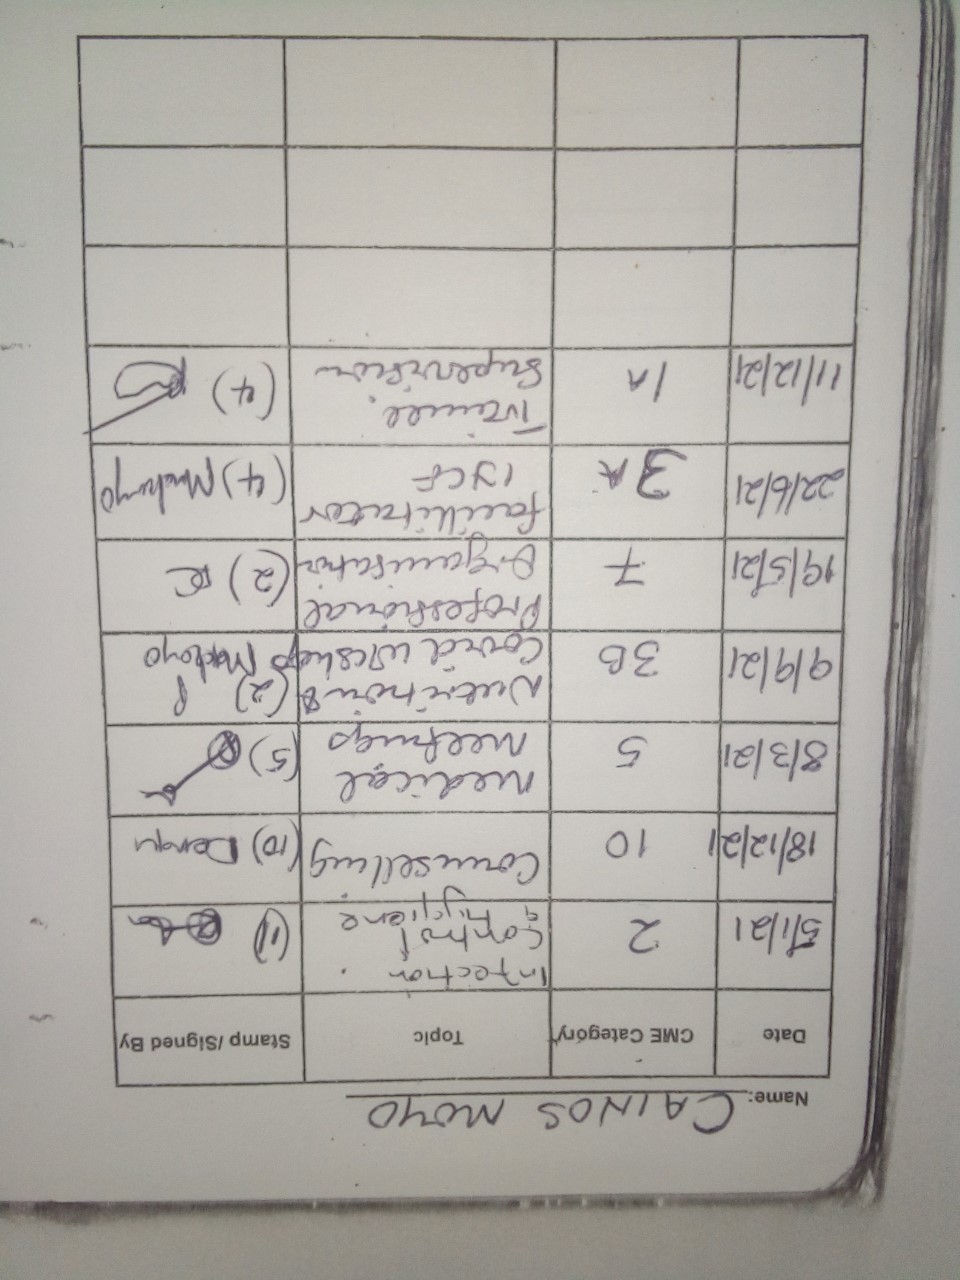 Name: CAINOS MOYO
Date CME Category Topic Stamp /Signed By
5/1/21 2 Infection Control & Hygiene (1)
18/12/21 10 Counselling (10)
8/3/21 5 Medical Meetings (5)
9/9/21 3B Nutrition & Covid (2)
19/5/21 7 Professional Organisation (2)
22/6/21 3A facilitator IYCF (4)
11/12/21 1A Trainee Supervision (4)